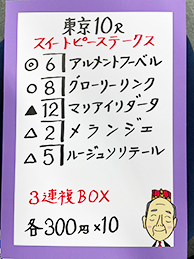 東京10R
スイートピーステークス
◎ 6 アルメントフーベル
○ 8 グローリーリンク
▲ 12 マリアイリダータ
△ 2 メランジェ
△ 5 ルージュソリテール
3連複BOX
各300円×10